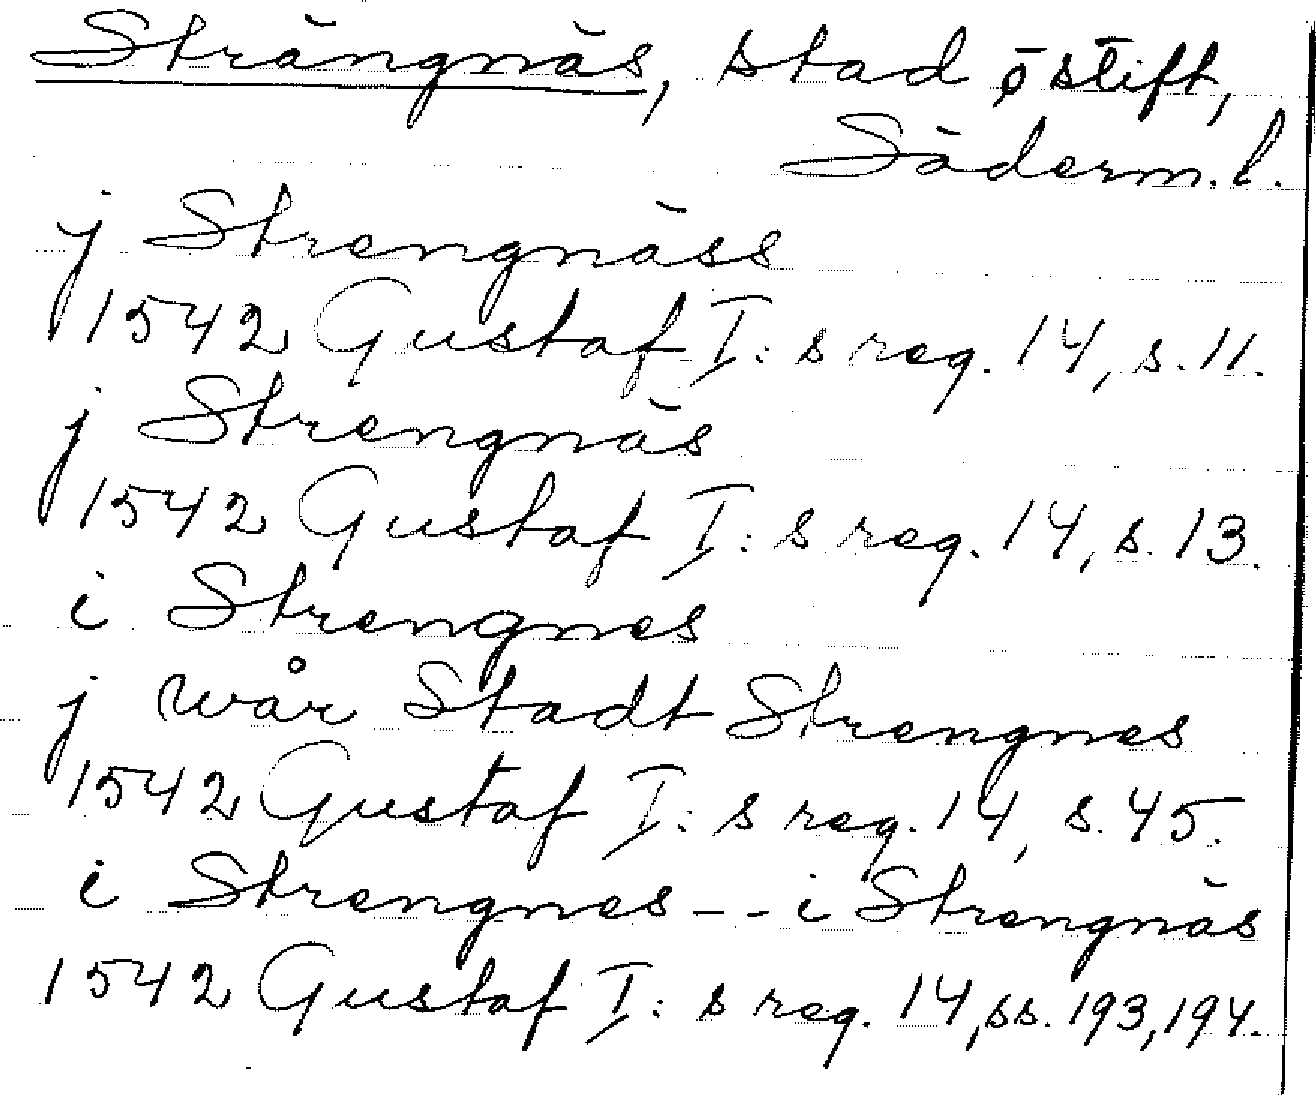 Strängnäs, stad o stift,
Söderm. l.
j Strengnäss
1542 Gustaf I: s reg. 14, s. 11.
j Strengnäs
1542 Gustaf I: s reg. 14, s. 13.
i Strengnes
j wår Stadt Strengnes
1542 Gustaf I: s reg. 14, s. 45.
i Strengnes - - i Strengnäs
1542 Gustaf I: s reg. 14, ss. 193, 194.